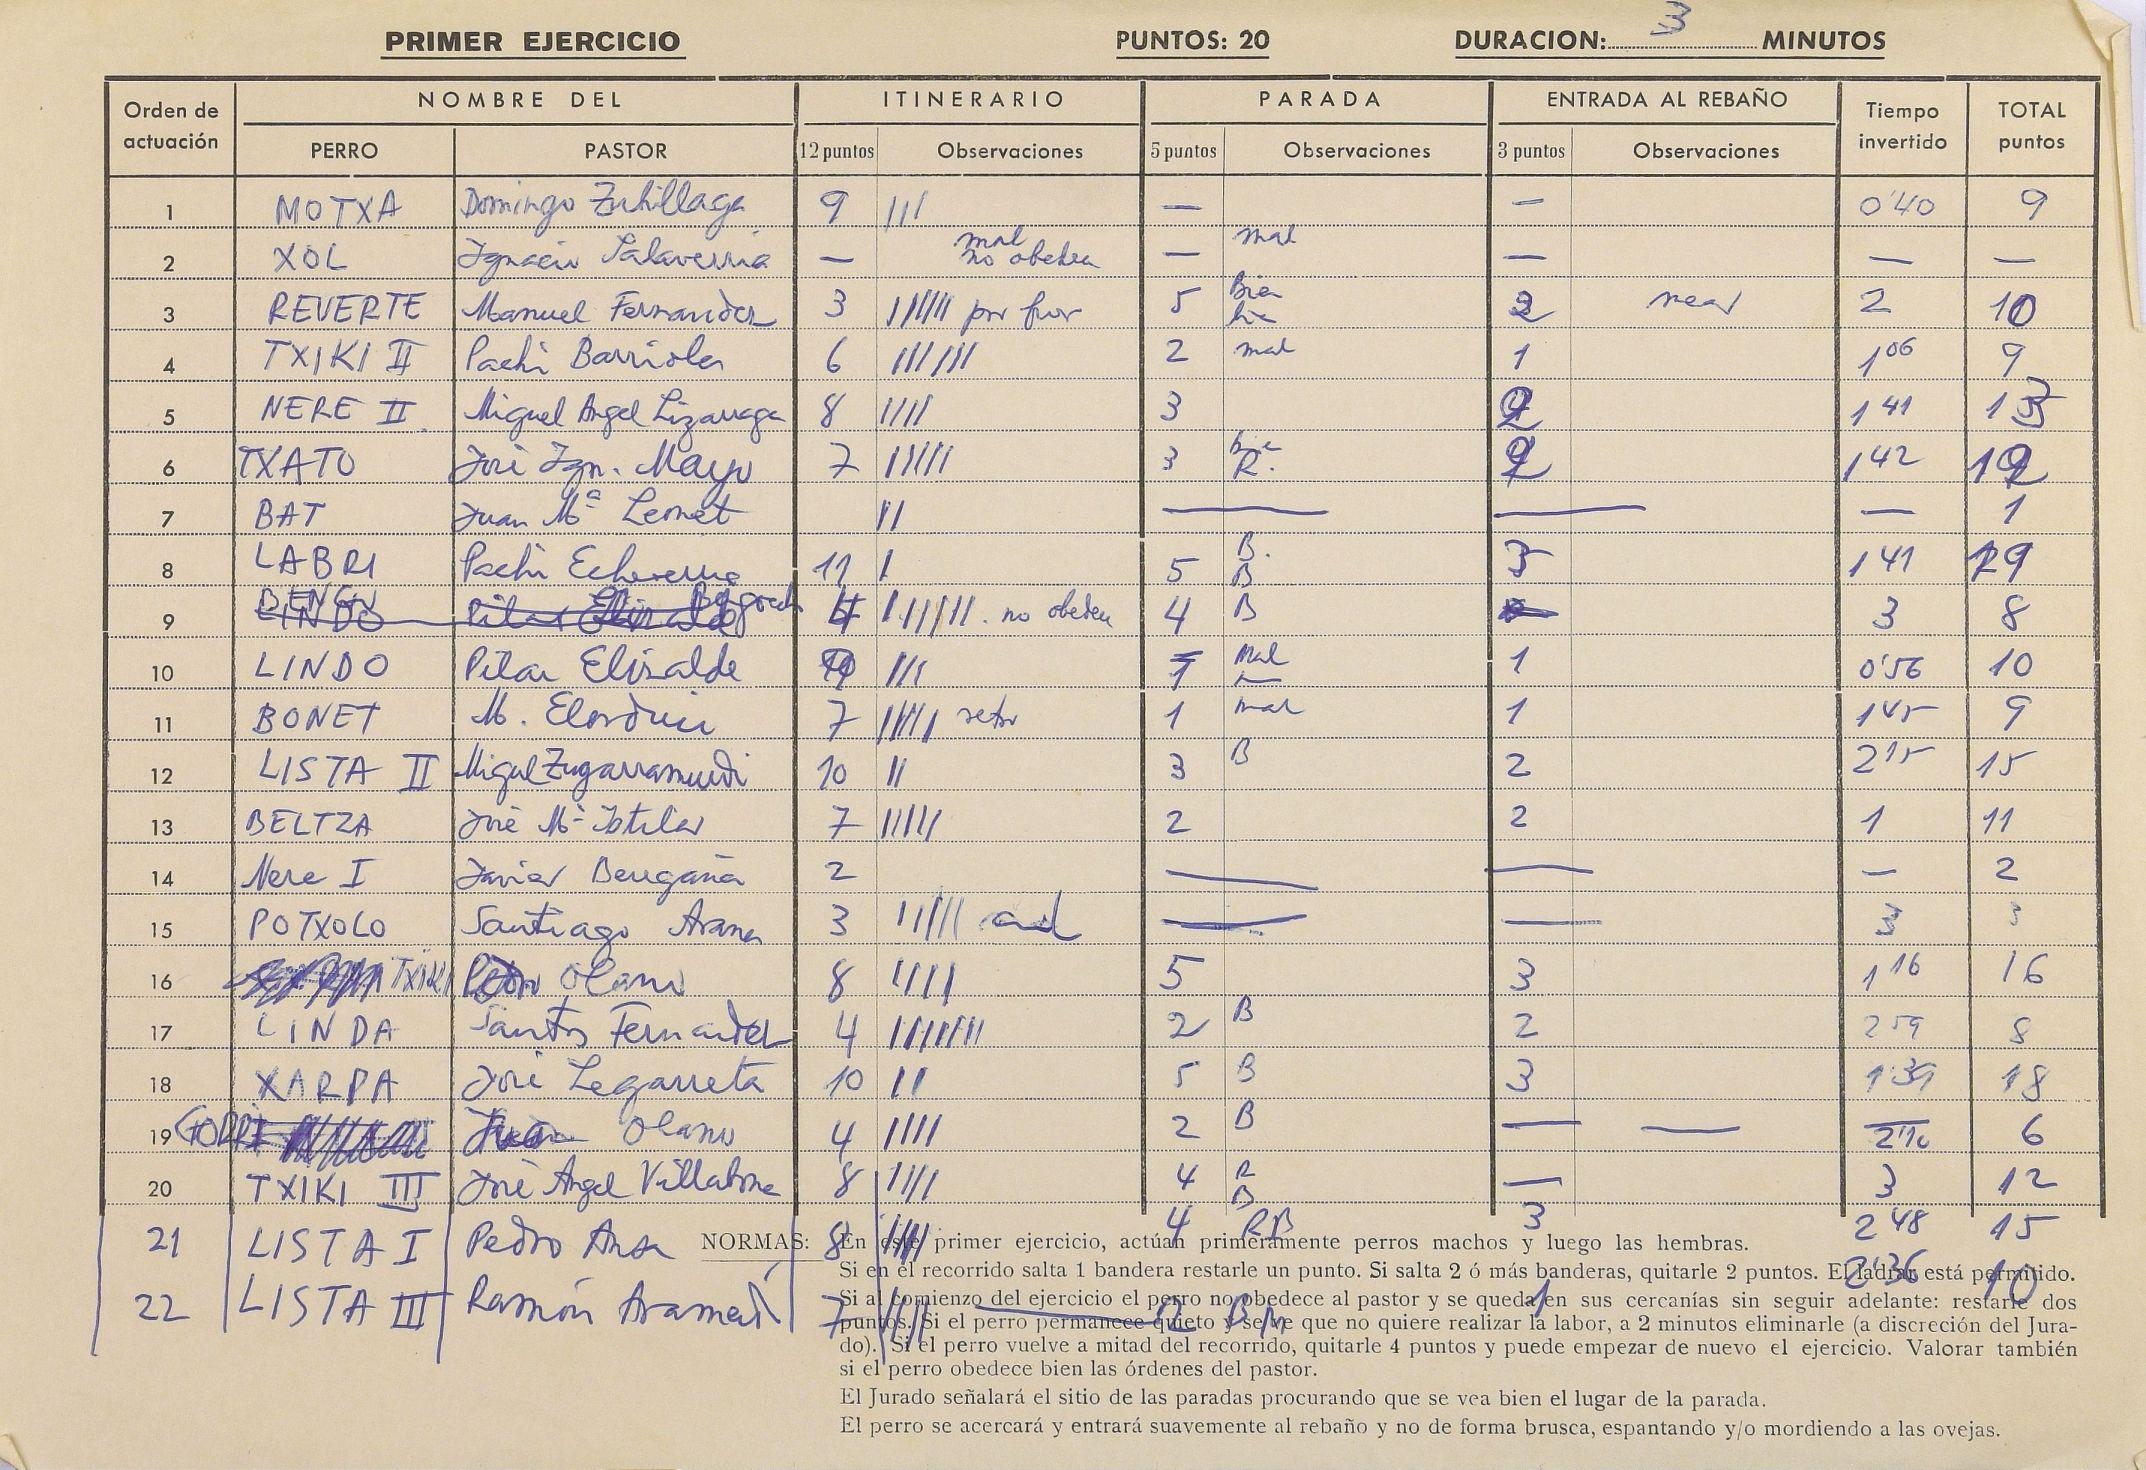 PRIMER EJERCICIO PUNTOS: 20 DURACION: 3 MINUTOS
Orden de actuación NOMBRE DEL ITINERARIO PARADA ENTRADA AL REBAÑO Tiempo invertido TOTAL puntos
PERRO PASTOR 12 puntos Observaciones 5 puntos Observaciones 3 puntos Observaciones
1 MOTXA Domingo Zubillaga 9 /// — — 0'40 9
2 XOL Ignacio Salaverria — mal no obedea — mal — — —
3 REVERTE Manuel Fernandez 3 ////// por fuor 5 Bien 2 2 10
4 TXIKI II Pachi Barriola 6 ////// 2 mal 1 1 06 9
5 NERE II Miguel Angel Lizarraga 8 //// 3 2 1 41 13
6 TXATO José Ign. Mayo 7 ///// 3 R. 2 1 42 12
7 BAT Juan Mª Lernet // — — — 1
8 LABRI Pachi Echeverria 11 / 5 B. B 3 1 41 19
9 BENGY 4 /////// no obedea 4 B 3 8
10 LINDO Pilar Elizalde /// 1 Mal 1 0'56 10
11 BONET M. Elorduia 7 ///// 1 mal 1 1 45 9
12 LISTA II Miguel Zugarramurdi 10 // 3 B 2 2 15 15
13 BELTZA José Mª 7 ///// 2 2 1 11
14 Nere I Javier Beregaña 2 — — — 2
15 POTXOLO Santiago Arana 3 ///// — — 3 3
16 TXIKI Olano 8 //// 5 3 1 16 16
17 LINDA Santos Fernandez 4 /////// 2 B 2 2 59 8
18 XARPA José Legarreta 10 // 5 B 3 1'39 18
19 GORRI Olano 4 //// 2 B — — 6
20 TXIKI III José Angel Villabona 8 //// 4 R B — 3 12
21 LISTA I Pedro Ansa 8 //// 4 RB 3 2 48 15
22 LISTA III Ramón 7 //// 2 1 2'36 10
NORMAS: En este primer ejercicio, actúan primeramente perros machos y luego las hembras.
Si en el recorrido salta 1 bandera restarle un punto. Si salta 2 ó más banderas, quitarle 2 puntos. El ladrar está permitido.
Si al comienzo del ejercicio el perro no obedece al pastor y se queda en sus cercanías sin seguir adelante: restarle dos
puntos. Si el perro permanece quieto y se ve que no quiere realizar la labor, a 2 minutos eliminarle (a discreción del Jura-
do). Si el perro vuelve a mitad del recorrido, quitarle 4 puntos y puede empezar de nuevo el ejercicio. Valorar también
si el perro obedece bien las órdenes del pastor.
El Jurado señalará el sitio de las paradas procurando que se vea bien el lugar de la parada.
El perro se acercará y entrará suavemente al rebaño y no de forma brusca, espantando y/o mordiendo a las ovejas.